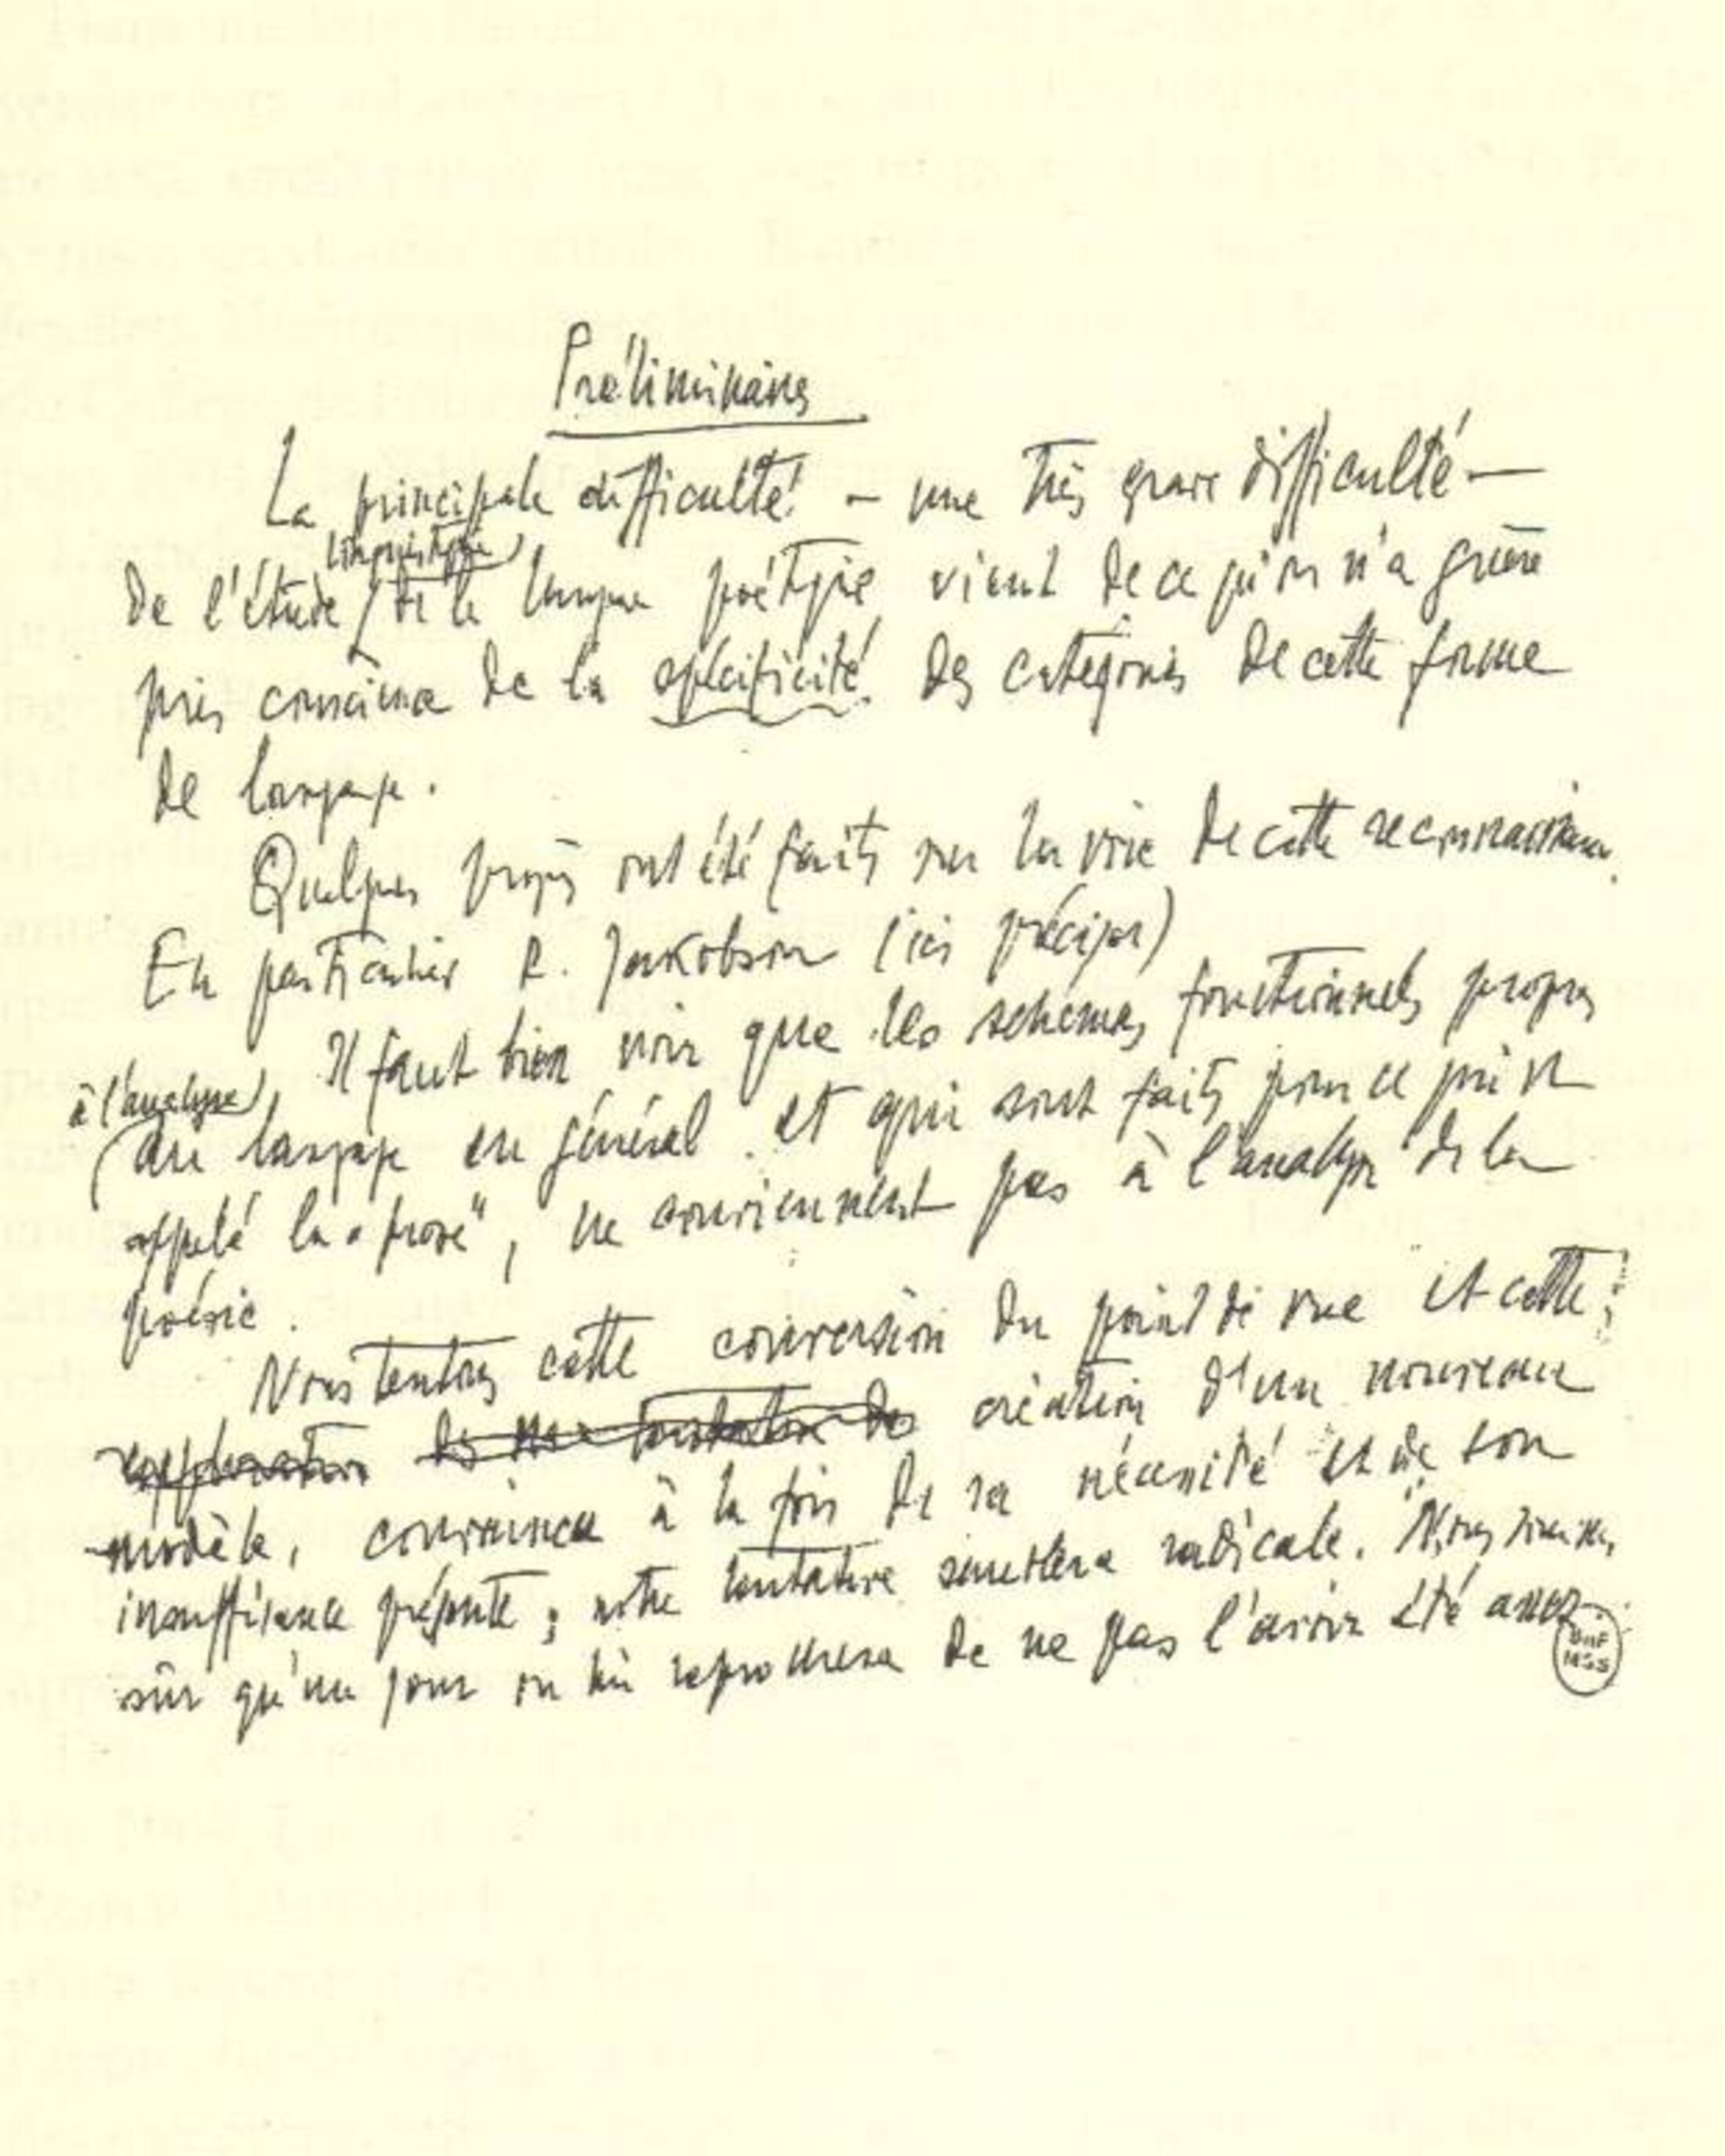 Préliminaires
La principale difficulté – une très grave difficulté –
linguistique
de l'étude de la langue poétique vient de ce qu'on n'a guère
pris conscience de la spécificité des catégories de cette forme
de langage.
Quelques progrès ont été faits sur la voie de cette reconnaissance.
En particulier R. Jakobson (ici préciser)
Il faut bien voir que les schémas fonctionnels propres
à l'analyse
du langage en général et qui sont faits pour ce qui est
appelé la "prose", ne conviennent pas à l'analyse de la
poésie.
Nous tentons cette conversion du point de vue et cette
exploration création d'un nouveau
modèle, convaincu à la fois de sa nécessité et de son
insuffisance présente ; notre tentative semblera radicale. Nous sommes
sûr qu'un jour on lui reprochera de ne pas l'avoir été assez.
BnF
MSS